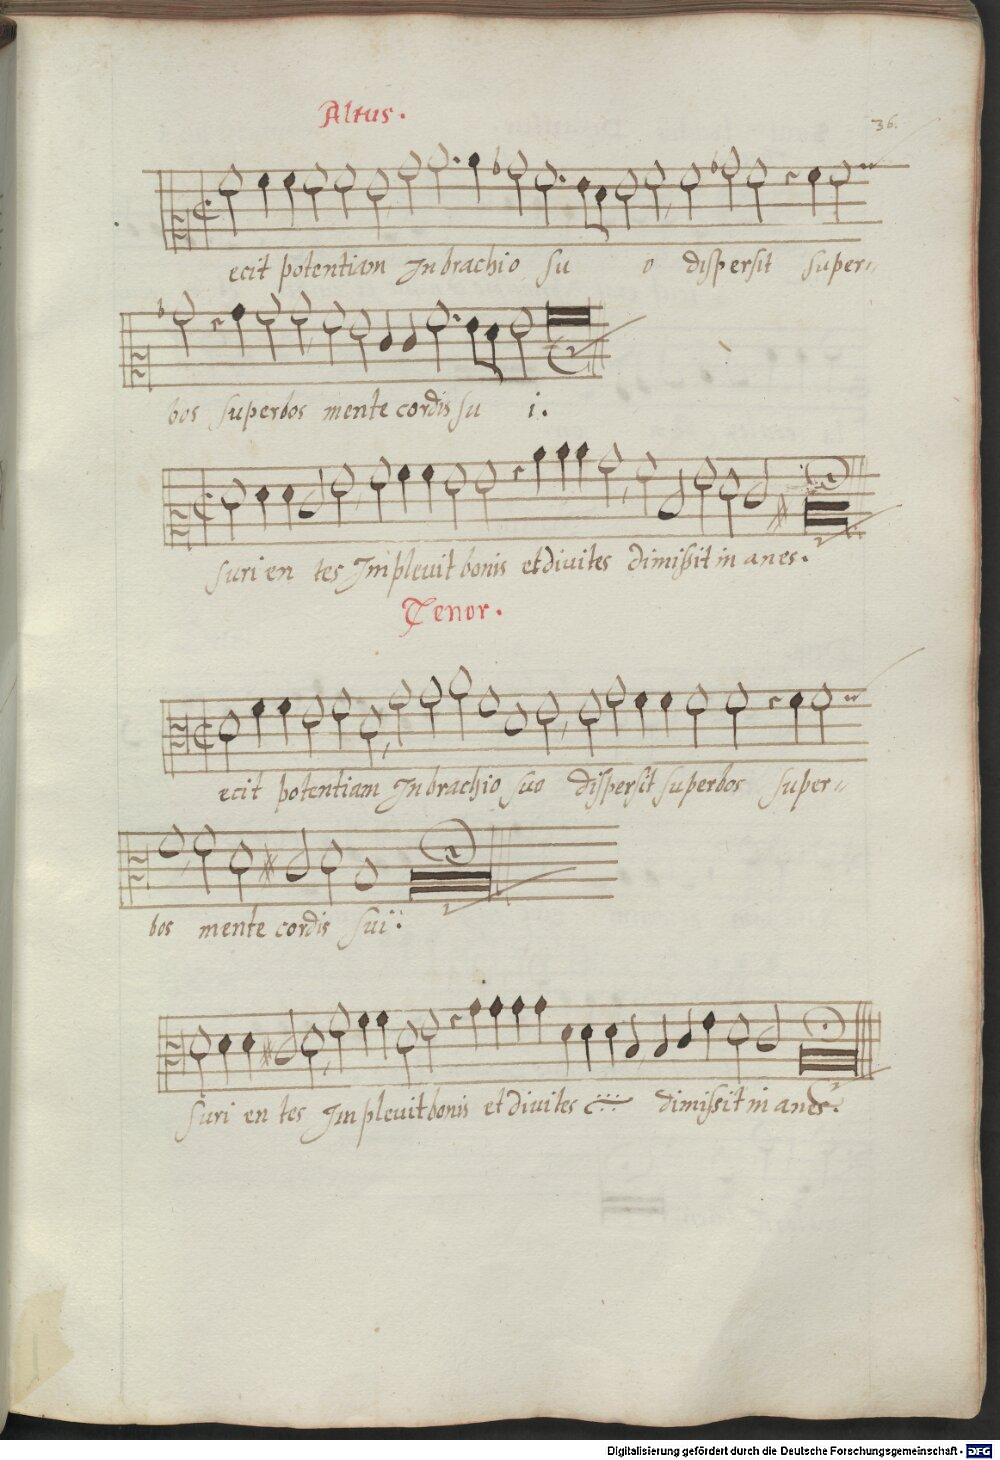 Altus.
36.
ecit potentiam In brachio su o dispersit super=
bos superbos mente cordis su i.
suri en tes Implevit bonis et divites dimissit in anes.
Tenor.
ecit potentiam In brachio suo dispersit superbos super=
bos mente cordis sui:
suri en tes Implevit bonis et divites dimissit in anes.
Digitalisierung gefördert durch die Deutsche Forschungsgemeinschaft - DFG